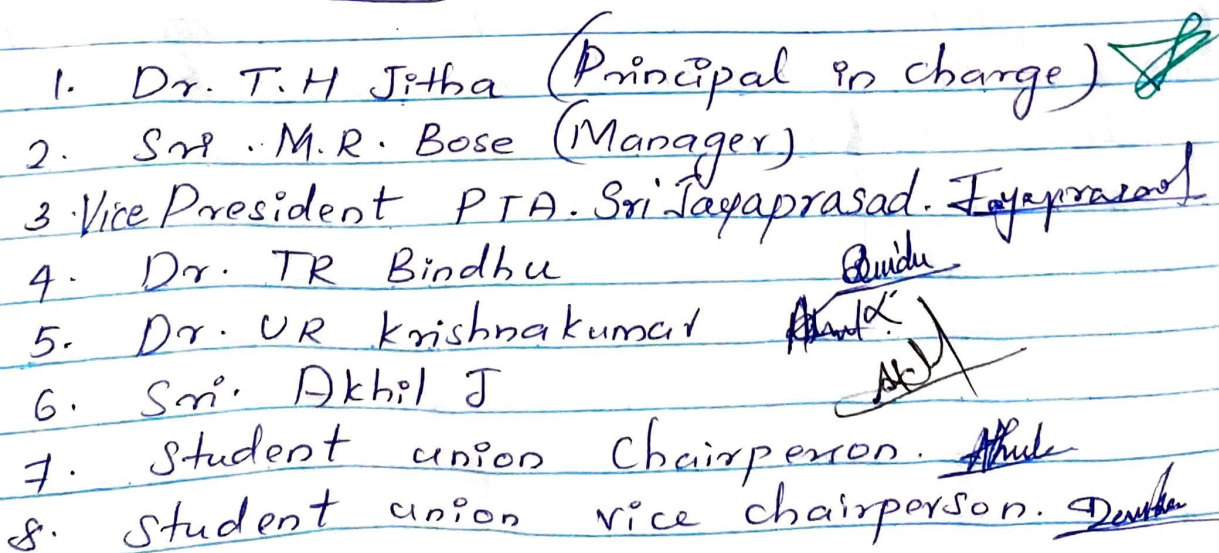 1. Dr. T.H Jitha (Principal in charge)
2. Sri. M.R. Bose (Manager)
3. Vice President PTA. Sri Jayaprasad. Jayaprasad
4. Dr. TR Bindhu
5. Dr. UR Krishnakumar
6. Sri. Akhil J
7. Student union Chairperson.
8. Student union vice chairperson.